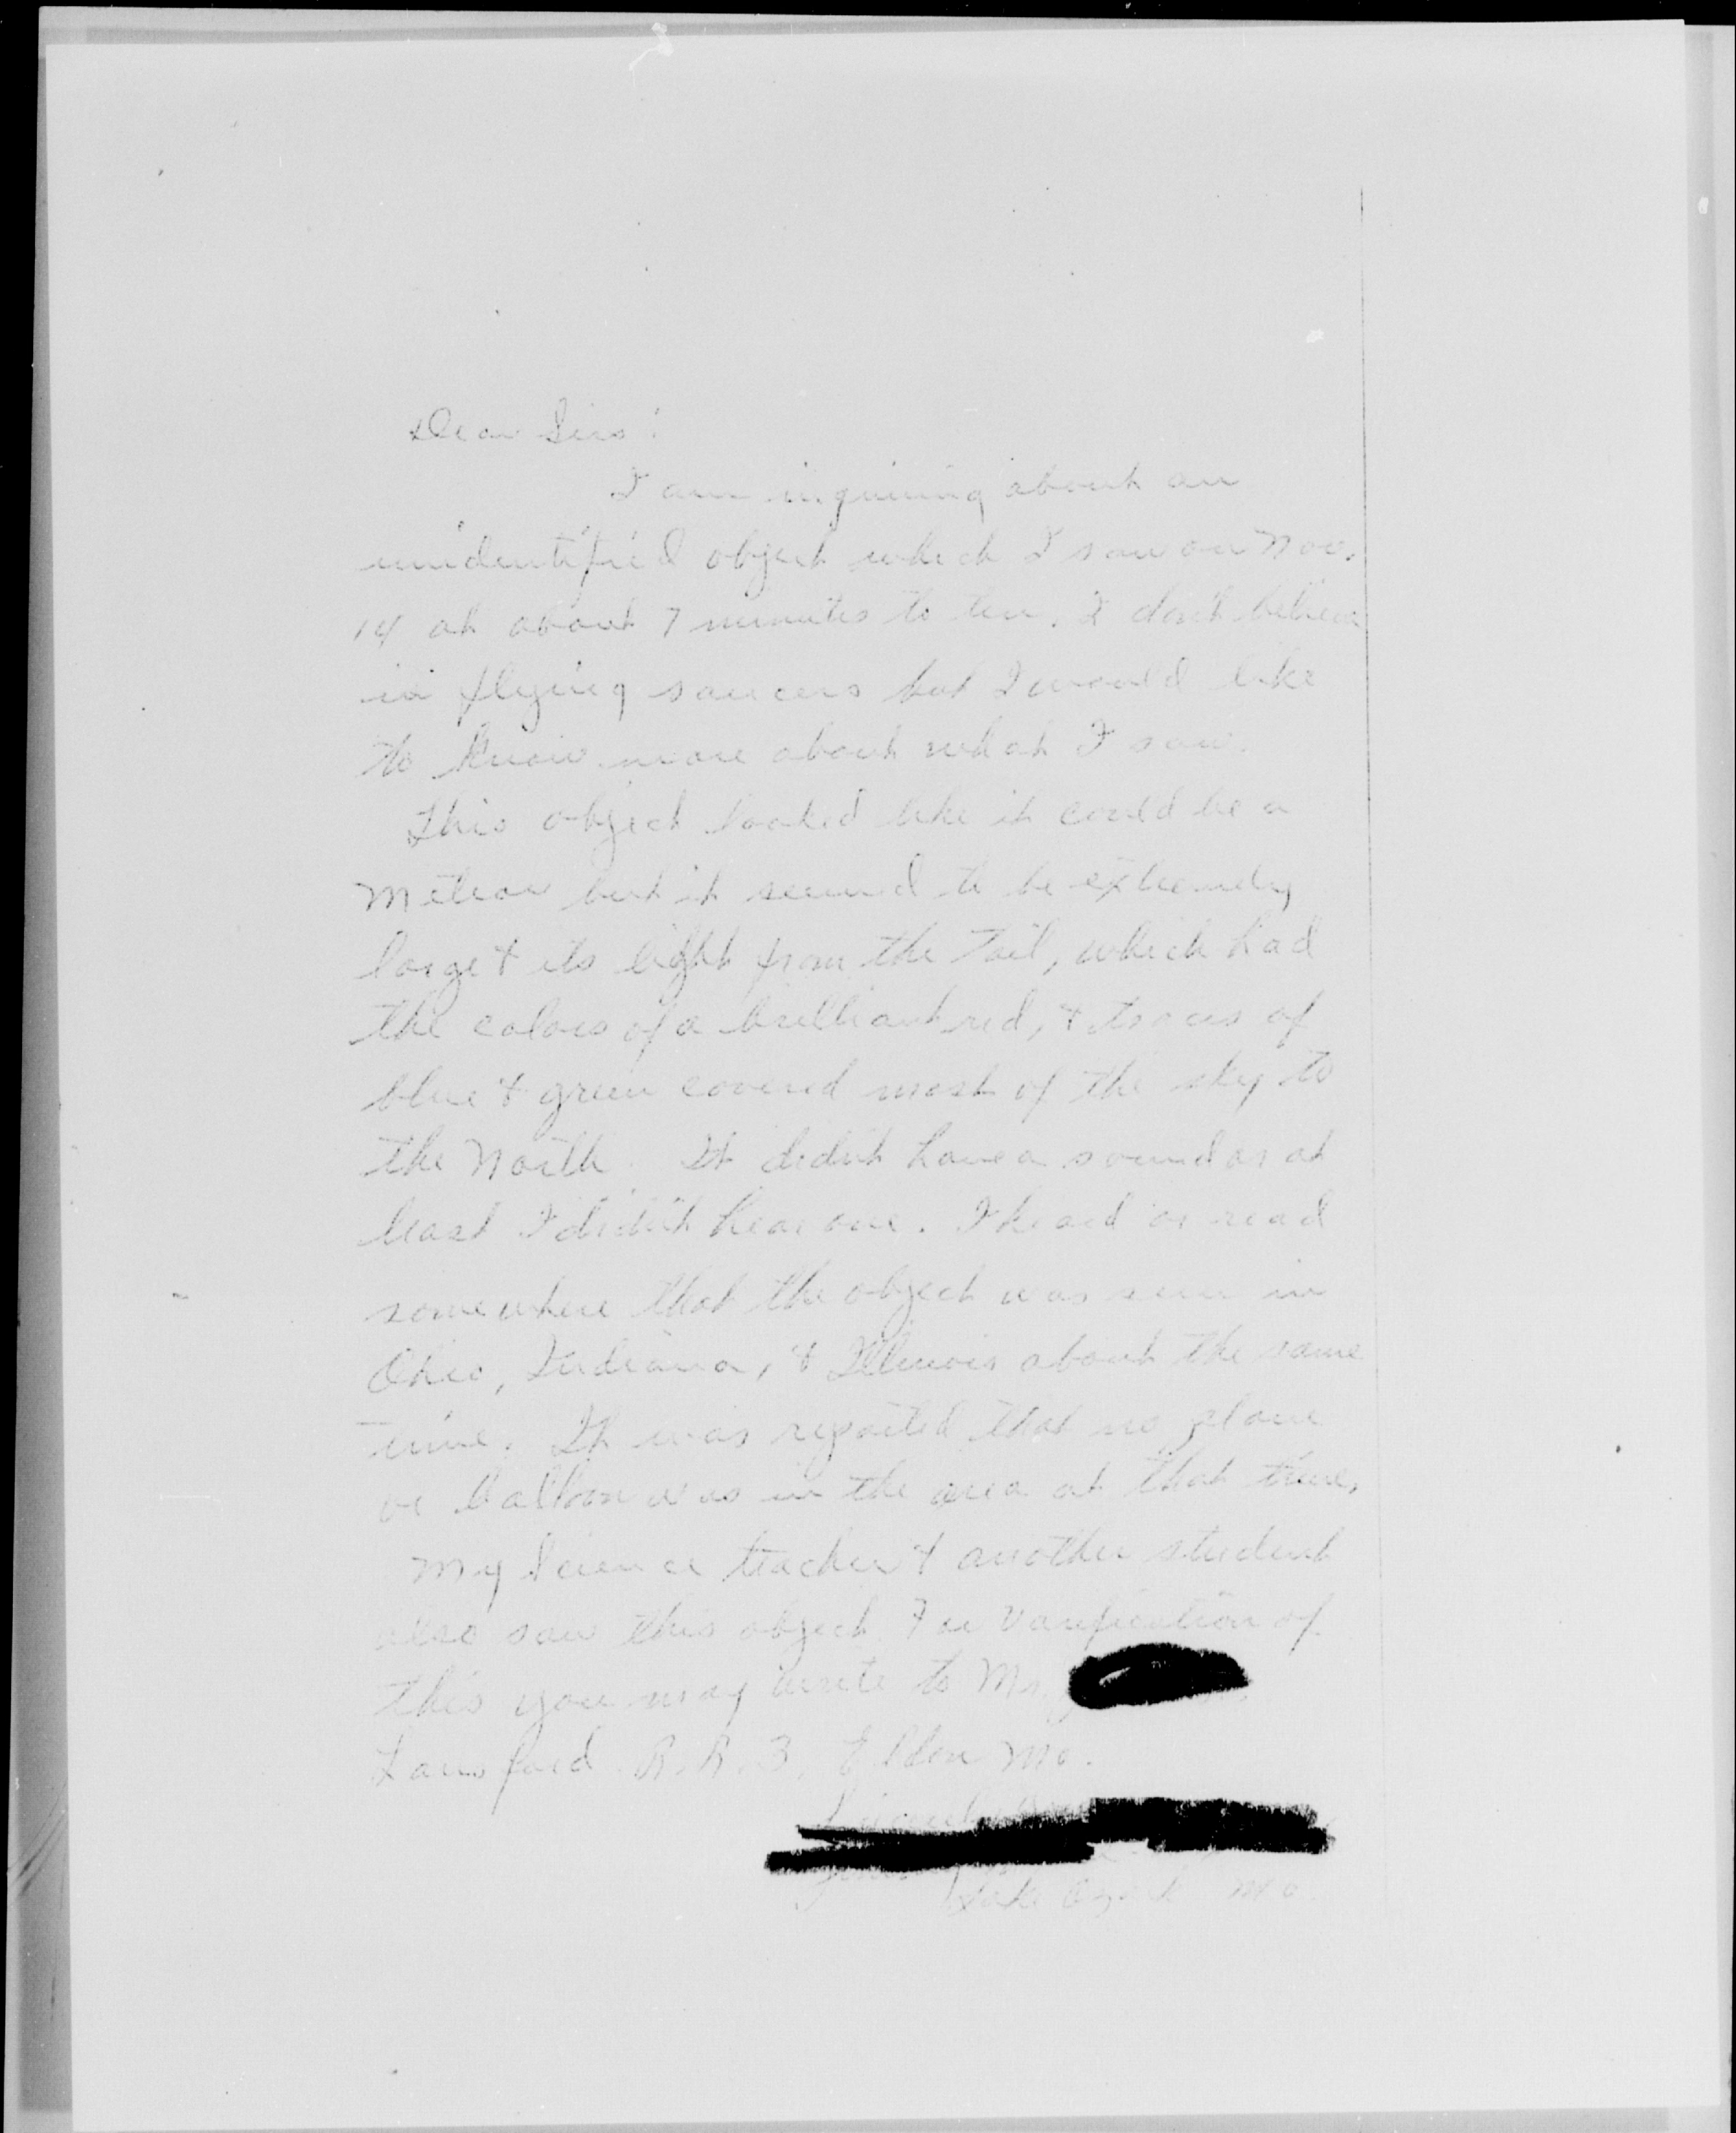 Dear Sirs:
I am inquiring about an
unidentified object which I saw on Nov.
14 at about 7 minutes to ten. I don't believe
in flying saucers but I would like
to know more about what I saw.
This object looked like it could be a
Meteor but it seemed to be extremely
large & its light from the tail, which had
the colors of a brilliant red, & traces of
blue & green covered most of the sky to
the North. It didn't have a sound or at
least I didn't hear one. I heard or read
somewhere that the object was seen in
Ohio, Indiana, & Illinois about the same
time. It was reported that no plane
or balloon was in the area at that time.
My Science teacher & another student
also saw this object. For varification of
this you may write to Mr.
Lansford R.R. 3, Eldon Mo.
Lake Ozark Mo.